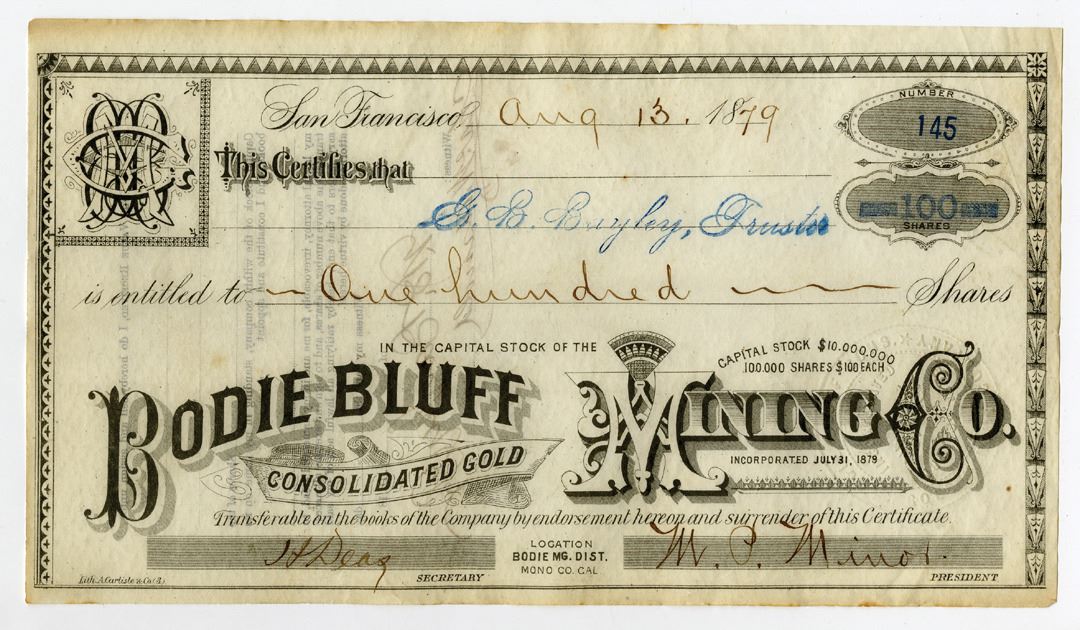 San Francisco, Aug 13. 1879
NUMBER
145
This Certifies, that
G. B. Bayley, Trustee
100
SHARES
is entitled to One hundred Shares
IN THE CAPITAL STOCK OF THE
CAPITAL STOCK $10.000,000
100.000 SHARES $100 EACH
BODIE BLUFF
CONSOLIDATED GOLD
MINING CO.
INCORPORATED JULY 31, 1879
Transferable on the books of the Company by endorsement hereon and surrender of this Certificate.
LOCATION
BODIE MG. DIST.
MONO CO. CAL
M. P. Minor.
SECRETARY
PRESIDENT
Lith. A. Carlisle & Co.